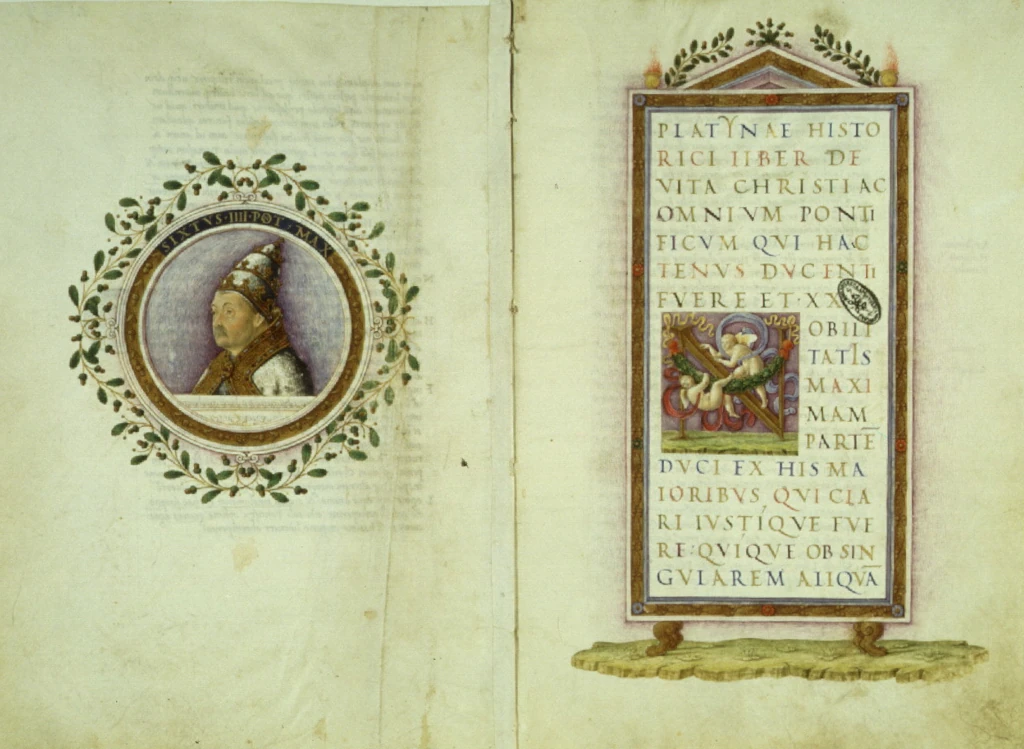 SIXTVS·IIII·POT·MAX
PLATYNAE HISTO
RICI LIBER DE
VITA CHRISTI AC
OMNIVM PONTI
FICVM QVI HAC
TENVS DVCENTI
FVERE ET·XX
OBILI
TATIS
MAXI
MAM
PARTĒ
DVCI EX HIS MA
IORIBVS, QVI CLA
RI IVSTIQVE FVE
RE: QVIQVE OB SIN
GVLAREM ALIQVĀ